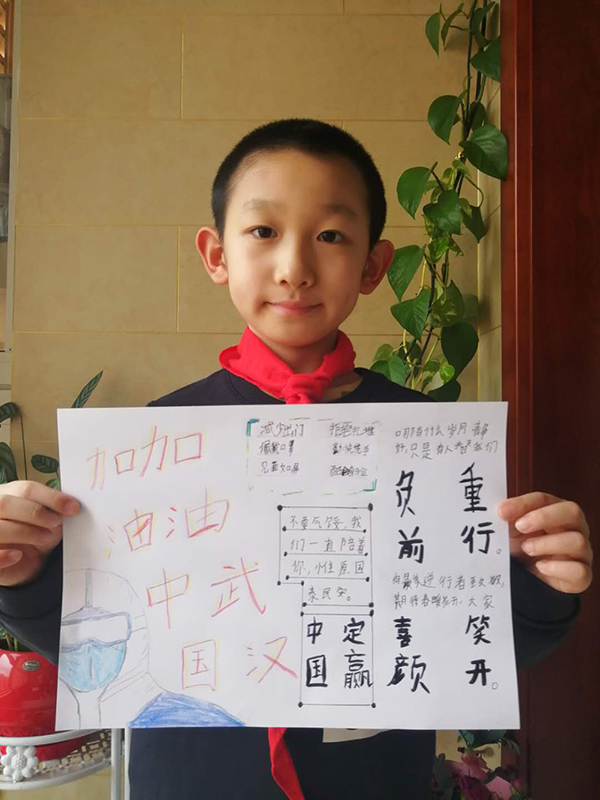 加油中国
加油武汉
减少出门 拒绝扎堆
佩戴口罩 勤洗洗手
不要气馁，我
们一直陪着
你，
中国
定赢
哪有什么岁月静
好，只是有人替我们
负重
前行。
向最美逆行者致敬，
期待春暖花开，大家
喜笑
颜开。